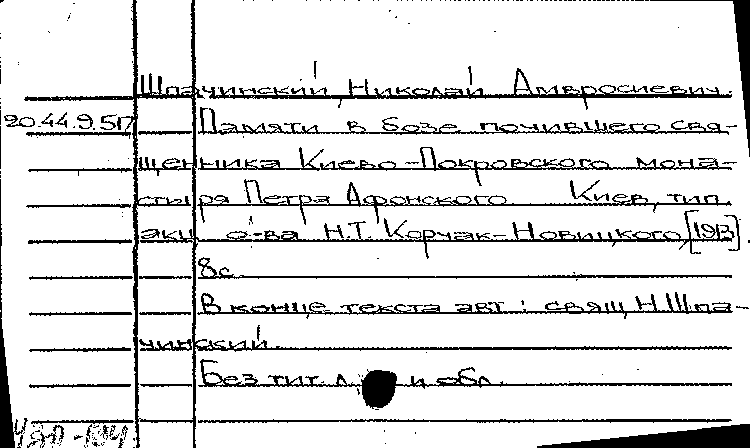 Шпачинский, Николай Амвросиевич.
20.44.9.5П Памяти в бозе почившего свя-
щенника Киево-Покровского мона-
стыря Петра Афонского. Киев, тип.
акц. о-ва Н.Т. Корчак-Новицкого, [1913].
8с.
В конце текста авт.: свящ. Н. Шпа-
чинский.
Без тит. л. и обл.